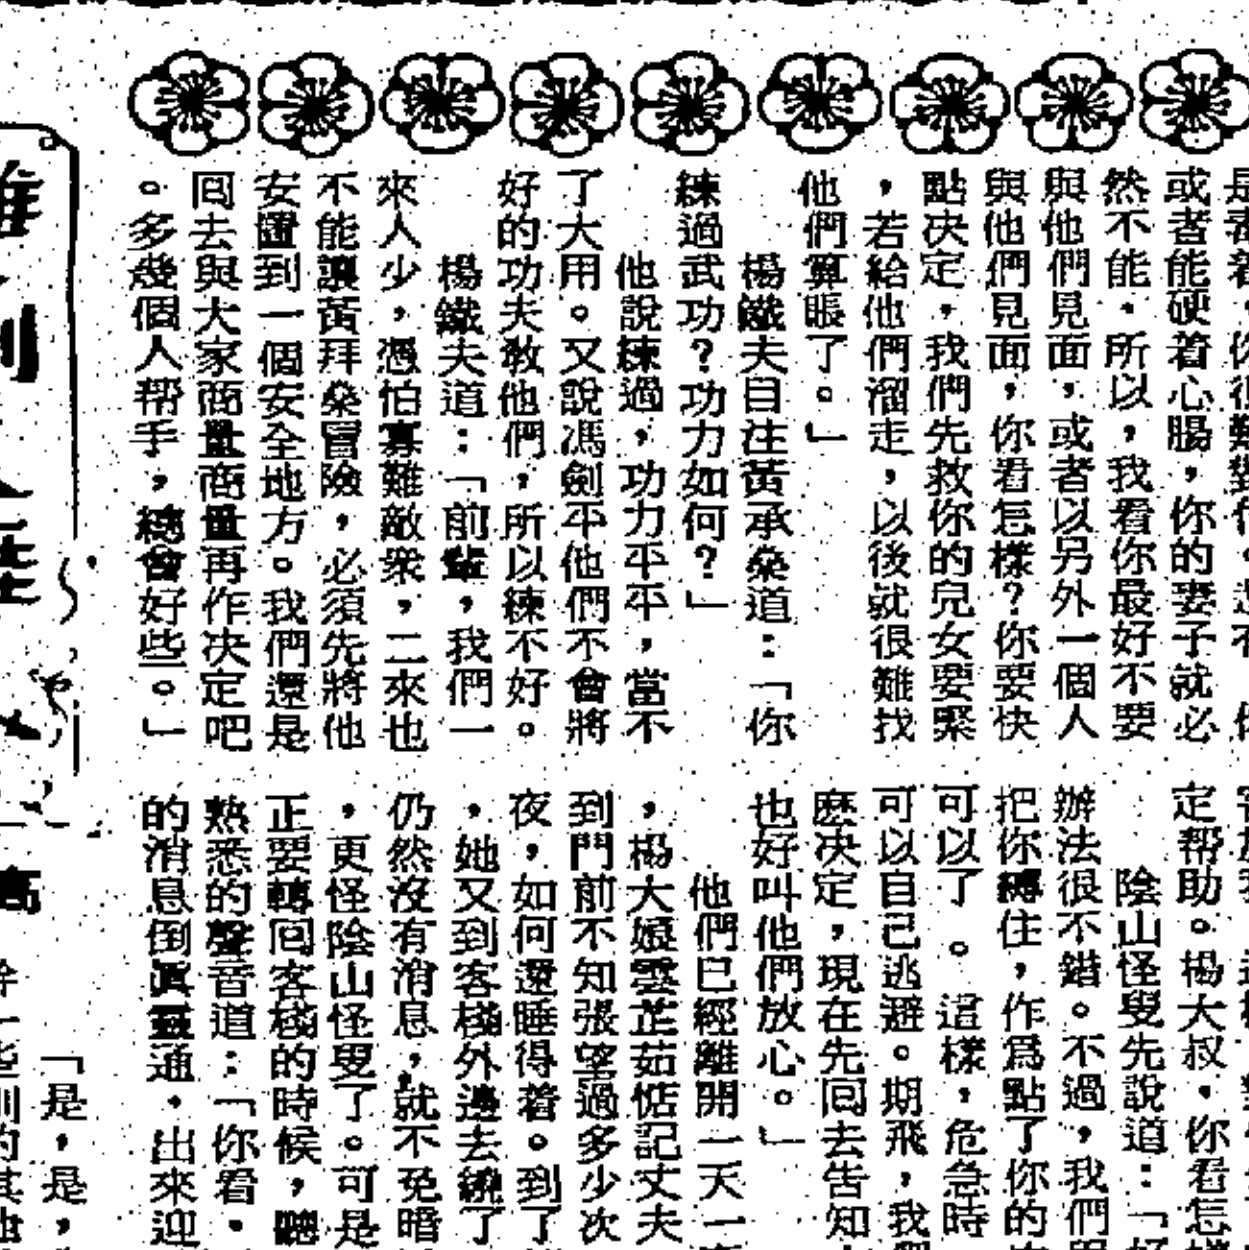 或者能硬着心腸，你的妻子就必
然不能。所以，我看你最好不要
與他們見面，或者以另外一個人
與他們見面，你看怎樣？你要快
點决定，我們先救你的兒女要緊
，若給他們溜走，以後就很難找
他們算賬了。」
楊鐵夫目注黃承桑道：「你
練過武功？功力如何？」
他說練過，功力平平，當不
了大用。又說馮劍平他們不會將
好的功夫教他們，所以練不好。
楊鐵夫道：「前輩，我們一
來人少，憑怕寡難敵衆，二來也
不能讓黃拜桑冒險，必須先將他
安置到一個安全地方。我們還是
囘去與大家商量商量再作决定吧
。多幾個人帮手，總會好些。」
定帮助。楊大叔，你看怎
陰山怪叟先說道：「好
辦法很不錯。不過，我們
把你縛住，作爲點了你的
可以了。這樣，危急時
可以自己逃避。期飛，我
麽决定，現在先囘去告知
也好叫他們放心。」
他們已經離開一天一
，楊大娘雲芷茹惦記丈夫
到門前不知張望過多少次
夜，如何還睡得着。到了
，她又到客棧外邊去繞了
仍然沒有消息，就不免暗
，更怪陰山怪叟了。可是
正要轉囘客棧的時候，聽
熟悉的聲音道：「你看，
的消息倒眞靈通，出來迎
「是，是，